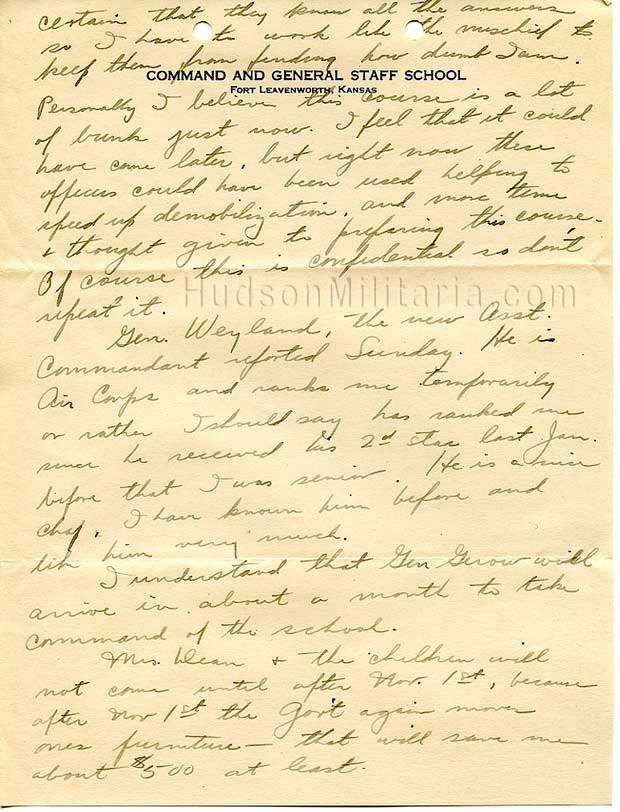 certain that they know all the answers
so I have to work like the mischief to
keep them from finding how dumb I am.
COMMAND AND GENERAL STAFF SCHOOL
FORT LEAVENWORTH, KANSAS
Personally I believe this course is a lot
of bunk just now. I feel that it could
have come later, but right now these
officers could have been used helping to
speed up demobilization, and more time
& thought given to preparing this course.
Of course this is confidential so don't
repeat it.
HudsonMilitaria.com
Gen. Weyland, the new Asst.
Commandant reported Sunday. He is
Air Corps and ranks me temporarily
or rather I should say has ranked me
since he received his 2nd star last Jan.
before that I was senior. He is a nice
chap. I have known him before and
like him very much.
I understand that Gen Gerow will
arrive in about a month to take
command of the school.
Mrs. Dean & the children will
not come until after Nov. 1st, because
after Nov 1st the Gov't again moves
ones furniture — that will save me
about $500 at least.